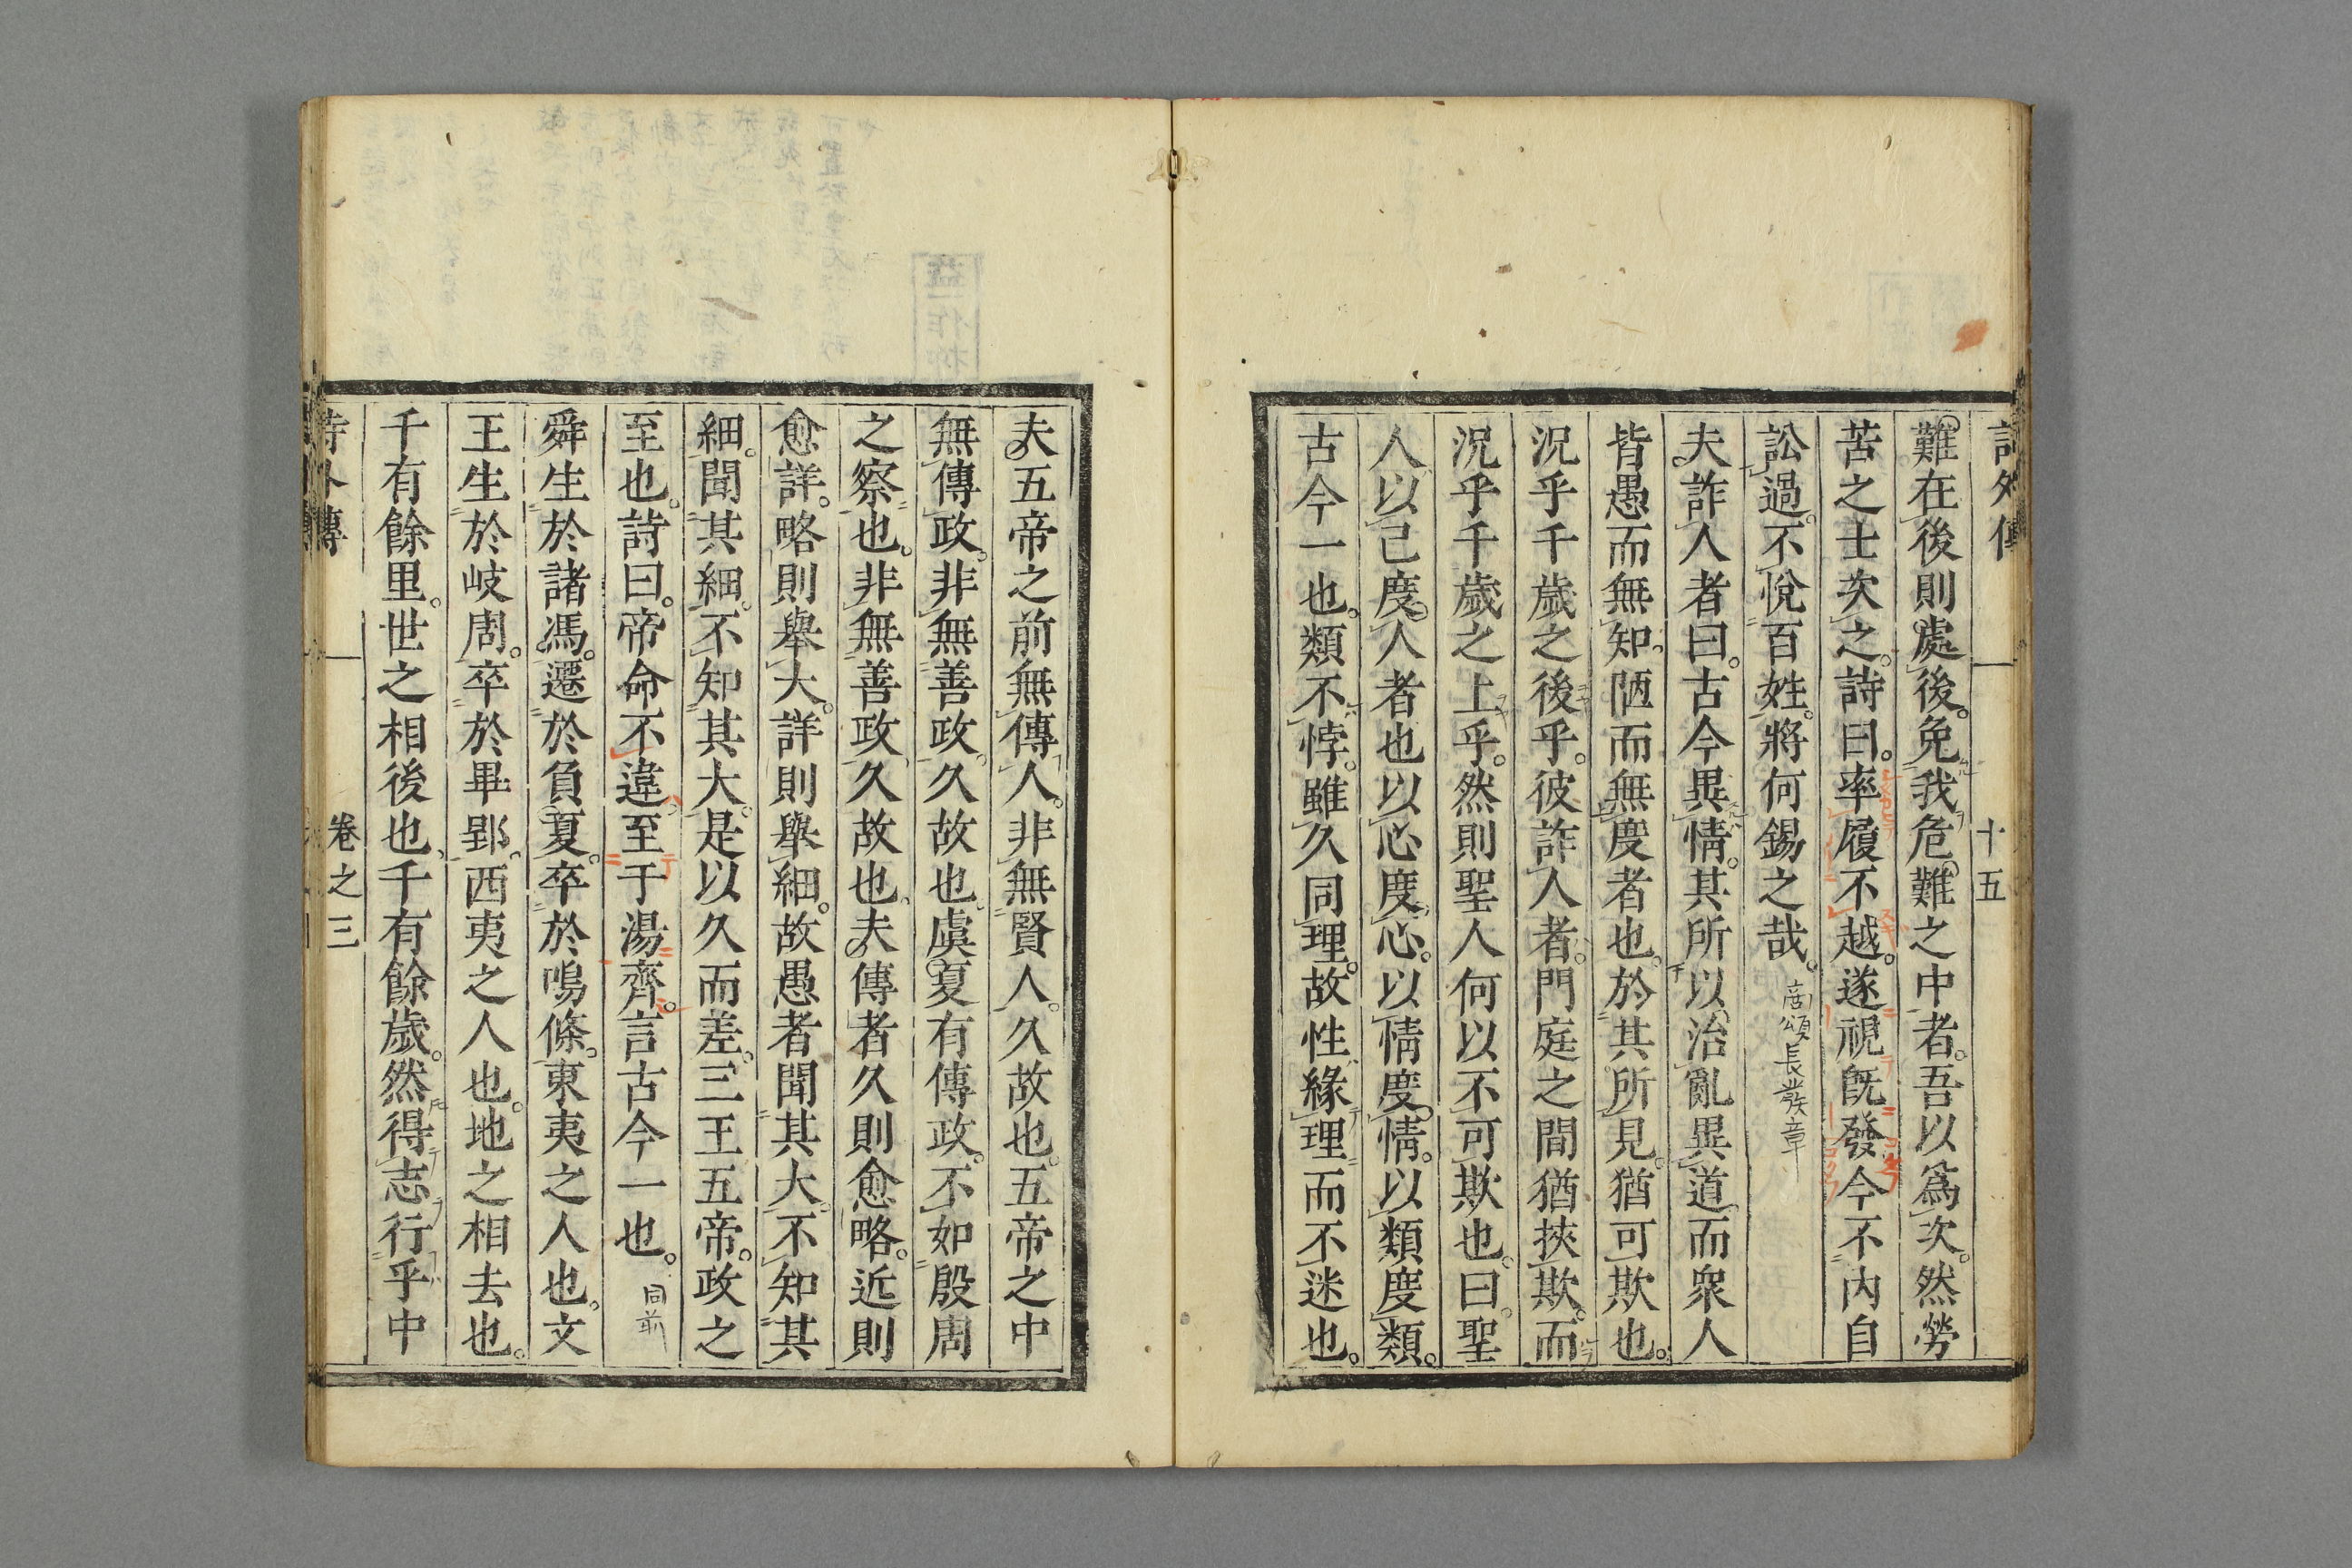 詩外傳 十五
難在後則處後免我危難之中者吾以爲次然勞
苦之士次之詩曰率履不越遂視旣發今不內自
訟過不悅百姓將何錫之哉 商頌長發章
夫詐人者曰古今異情其所以治亂異道而衆人
皆愚而無知陋而無度者也於其所見猶可欺也
況乎千歲之後乎彼詐人者門庭之間猶挾欺而
況乎千歲之上乎然則聖人何以不可欺也曰聖
人以己度人者也以心度心以情度情以類度類
古今一也類不悖雖久同理故性緣理而不迷也
夫五帝之前無傳人非無賢人久故也五帝之中
無傳政非無善政久故也虞夏有傳政不如殷周
之察也非無善政久故也夫傳者久則愈略近則
愈詳略則舉大詳則舉細故愚者聞其大不知其
細聞其細不知其大是以久而差三王五帝政之
至也詩曰帝命不違至于湯齊言古今一也 同前
舜生於諸馮遷於負夏卒於鳴條東夷之人也文
王生於岐周卒於畢郢西夷之人也地之相去也
千有餘里世之相後也千有餘歲然得志行乎中
詩外傳 卷之三